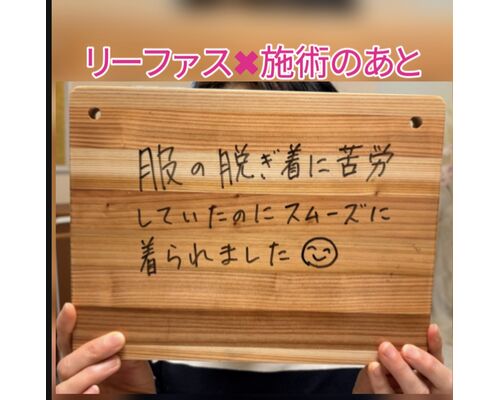 リーファス✖施術のあと
服の脱ぎ着に苦労
していたのにスムーズに
着られました😊